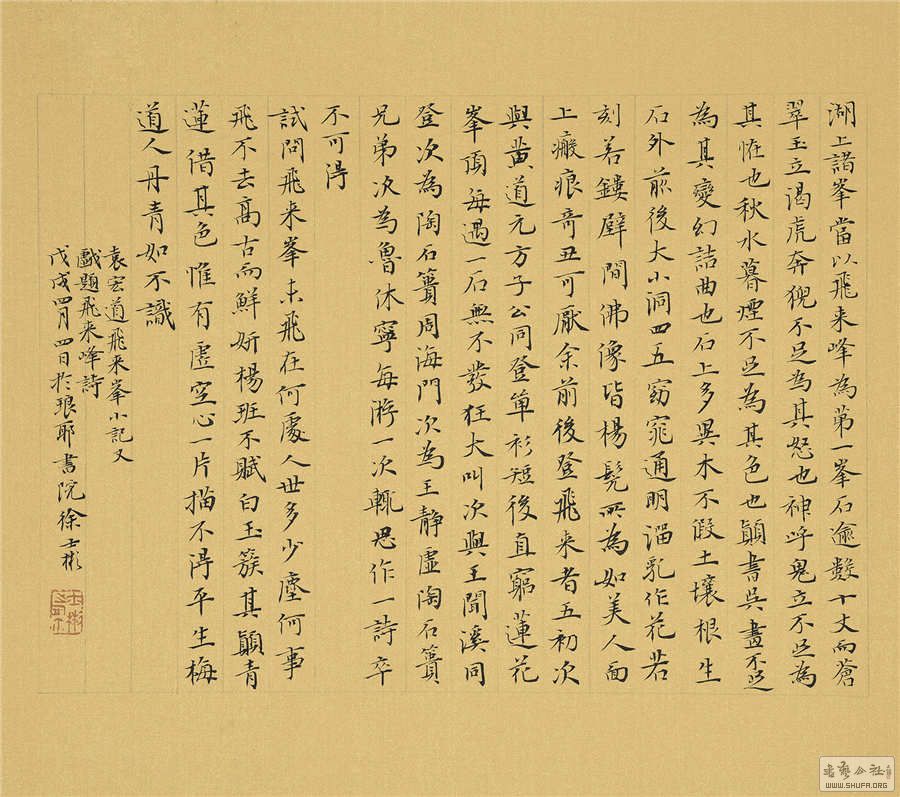 湖上諸峯當以飛来峰為第一峯石逾數十丈而蒼
翠玉立渴虎奔猊不足為其怒也神呼鬼立不足為
其恠也秋水暮煙不足為其色也顛書吳畫不足
為其變幻詰曲也石上多異木不假土壤根生
石外前後大小洞四五窈窕通明溜乳作花若
刻若鏤壁間佛像皆楊髡所為如美人面
上瘢痕奇丑可厭余前後登飛来者五初次
與黄道元方子公同登單衫短後直窮蓮花
峯頂每遇一石無不發狂大叫次與王聞溪同
登次為陶石簣周海門次為王静虛陶石簣
兄弟次為魯休寧每游一次輒思作一詩卒
不可得
試問飛来峯未飛在何處人世多少塵何事
飛不去高古而鮮妍楊班不賦白玉簇其顛青
蓮借其色惟有虛空心一片描不得平生梅
道人丹青如不識
袁宏道飛来峯小記又
戲題飛来峰詩
戊戌四月四日於琅耶書院徐士彬
WWW.SHUFA.ORG